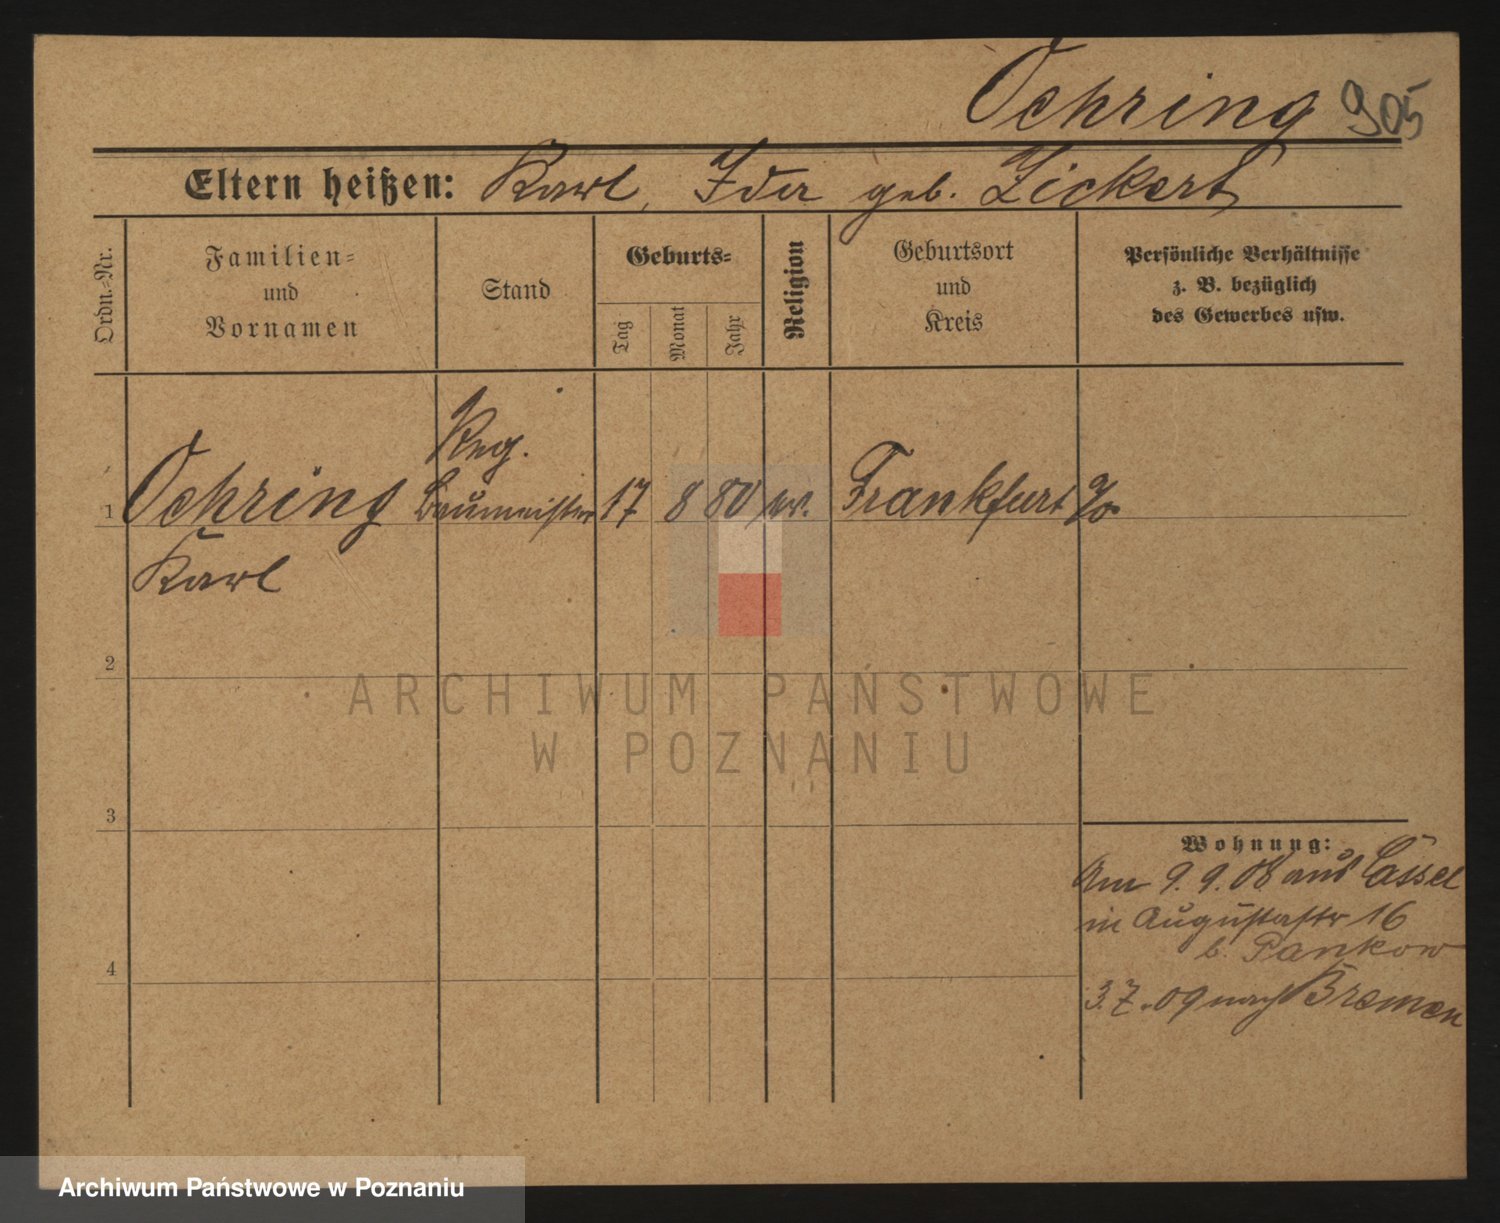 Oehring 905
Eltern heißen: Karl, Ida geb. Zickert
Ordn.-Nr.
Familien-
und
Vornamen
Stand
Geburts-
Tag
Monat
Jahr
Religion
Geburtsort
und
Kreis
Persönliche Verhältnisse
z. B. bezüglich
des Gewerbes usw.
Reg.
1 Oehring Baumeister 17 8 80 ev. Frankfurt a/o.
Karl
2
ARCHIWUM PAŃSTWOWE
W POZNANIU
3
Wohnung:
Am 9. 9. 08 aus Cassel
in Augustastr 16
b. Pankow
4
3.7.09 nach Bremen
Archiwum Państwowe w Poznaniu